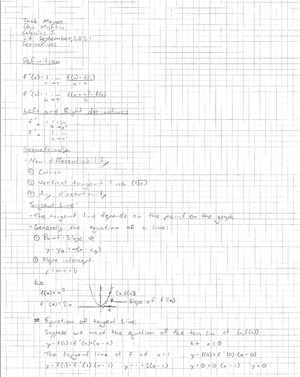 Calculus I
27 September, 2021
Derivatives
Definition
f'(a) = lim f(x)-f(a)
x→a x-a
f'(x) = lim f(x+h)-f(x)
h→0 h
Left and Right derivatives
f'- = lim
f'+ = lim
Geometrically
- Non-differentiability
① Corner
② Vertical tangent line
③ Any discontinuity
Tangent Line
- The tangent line depends on the point on the graph
- Generally the equation of a line:
① Point-Slope ☆
y-y₀ = m(x-x₀)
② Slope intercept
y=mx+b
Ex
f(x)=x² (x,f(x))
f'(x)=2x Slope of f'(x)
Equation of tangent line:
Suppose we want the equation of the tan line at (a,f(a))
y-f(a)=f'(a)(x-a) at x=0
The tangent line of f at x=1 y-f(0)=f'(0)(x-0)
y-f(1)=f'(1)(x-1) y-1=2(x-1) y=0+0(x-1) y=0